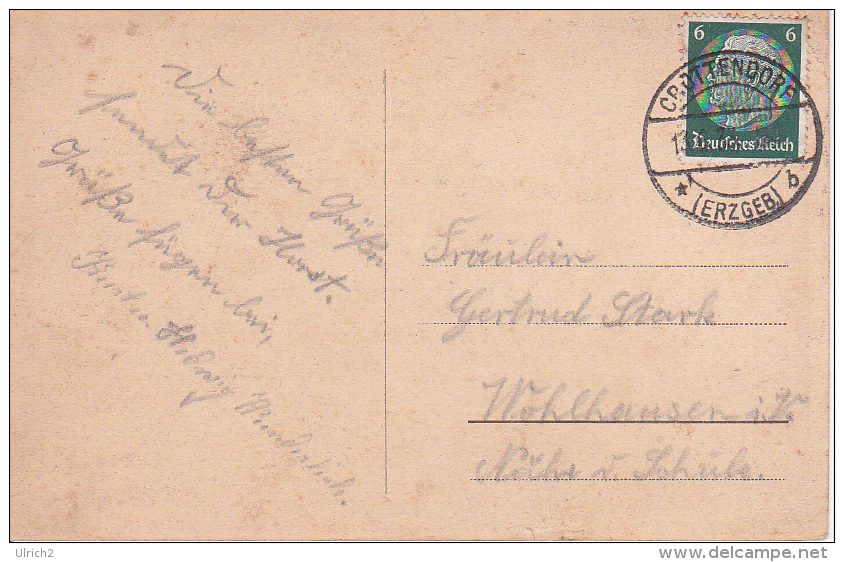 Die besten Grüße
sendet Dir Horst.
Grüße fügen bei,
Hedwig Wunderlich.
6 6
Deutsches Reich
CROTTENDORF
13.
(ERZGEB) b
Fräulein
Gertrud Stark
Wohlhausen i. V.
Nähe d. Schule.
Ulrich2
delcampe.net